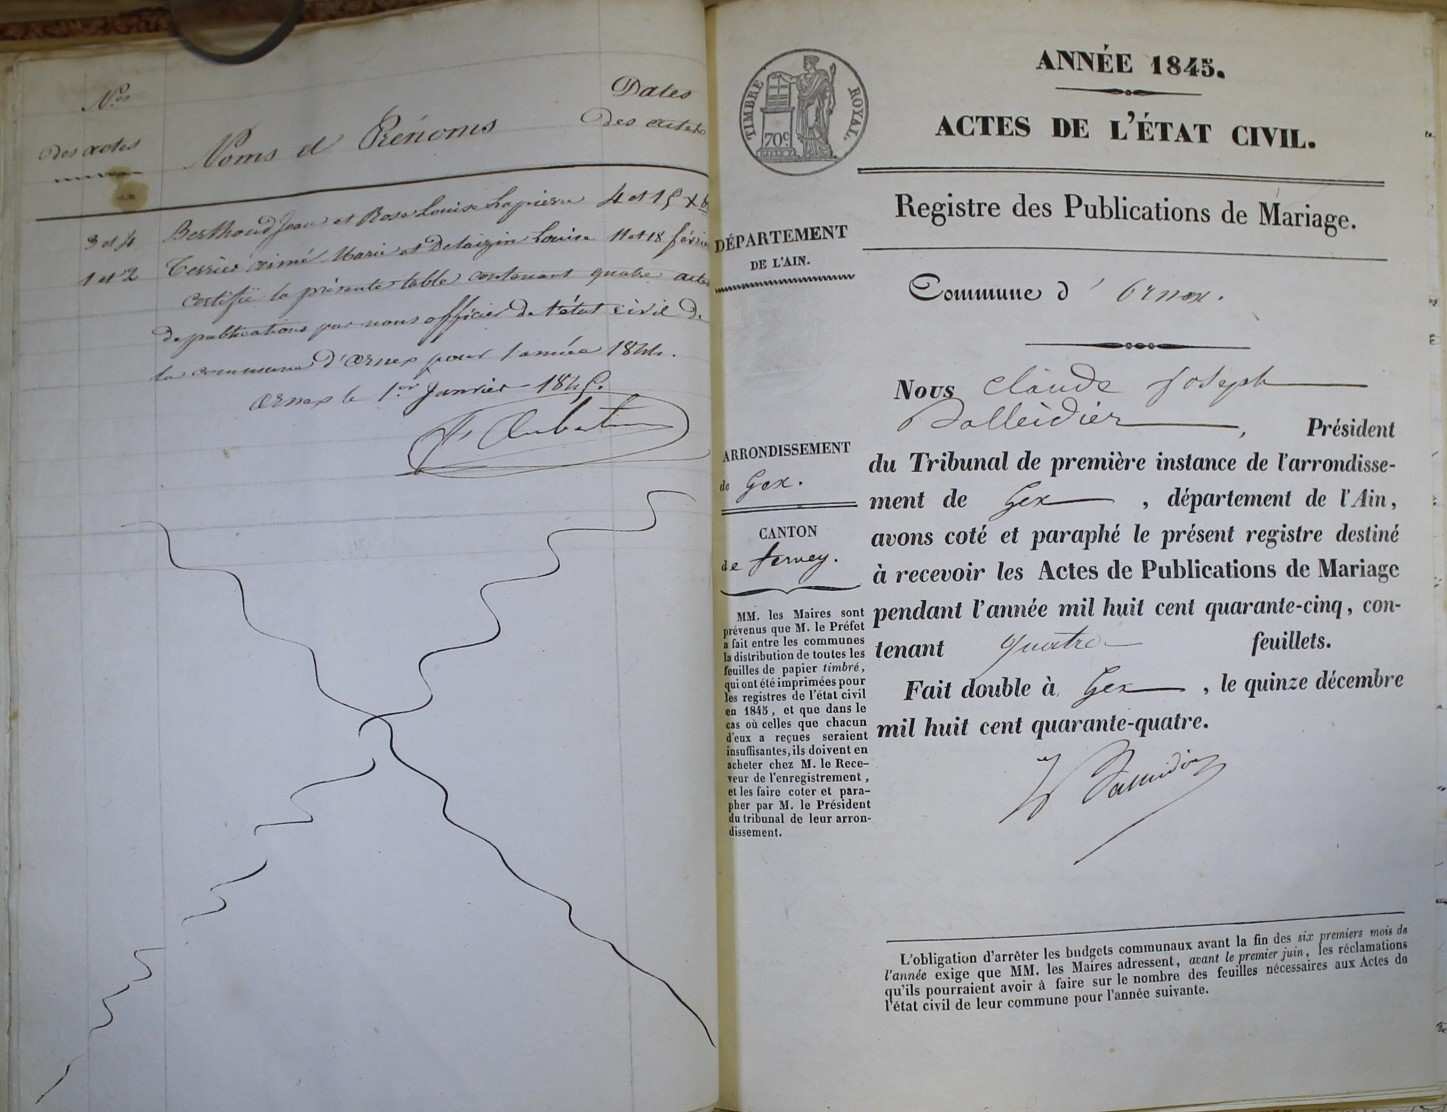 Nos
des actes
Noms et Prénoms
Dates
des actes
3 et 4 Berthoud Jean et Rose Louise Lapierre 4 et 15 Xb
1 et 2 Terrier Aimé Marie et Delaizin Louise 11 et 18 février
certifié la présente table contenant quatre actes
de publications par nous officier de l'état civil de
la commune d'ornex pour l'année 1844.
ornex le 1er Janvier 1845.
TIMBRE ROYAL.
70c
ANNÉE 1845.
ACTES DE L'ÉTAT CIVIL.
Registre des Publications de Mariage.
DÉPARTEMENT
DE L'AIN.
Commune d' Ornex.
Nous Claude Joseph
, Président
du Tribunal de première instance de l'arrondisse-
ment de Gex , département de l'Ain,
avons coté et paraphé le présent registre destiné
à recevoir les Actes de Publications de Mariage
pendant l'année mil huit cent quarante-cinq, con-
tenant quatre feuillets.
Fait double à Gex , le quinze décembre
mil huit cent quarante-quatre.
ARRONDISSEMENT
de Gex.
CANTON
de ferney.
MM. les Maires sont
prévenus que M. le Préfet
a fait entre les communes
la distribution de toutes les
feuilles de papier timbré,
qui ont été imprimées pour
les registres de l'état civil
en 1845, et que dans le
cas où celles que chacun
d'eux a reçues seraient
insuffisantes, ils doivent en
acheter chez M. le Rece-
veur de l'enregistrement,
et les faire coter et para-
pher par M. le Président
du tribunal de leur arron-
dissement.
L'obligation d'arrêter les budgets communaux avant la fin des six premiers mois de
l'année exige que MM. les Maires adressent, avant le premier juin, les réclamations
qu'ils pourraient avoir à faire sur le nombre des feuilles nécessaires aux Actes de
l'état civil de leur commune pour l'année suivante.